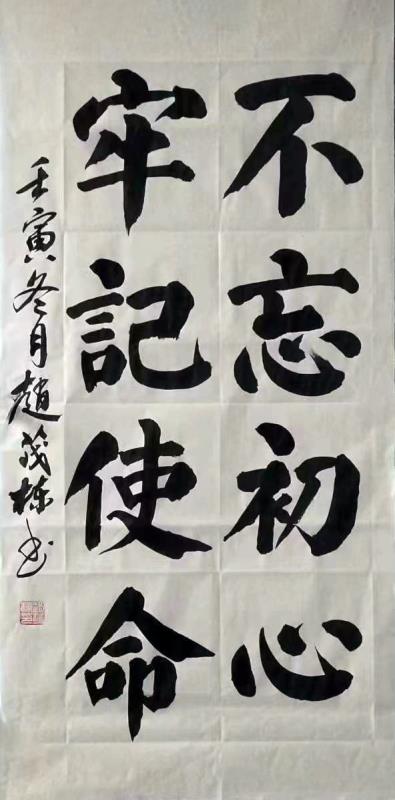 不忘初心
牢記使命
壬寅冬月趙茂棟书